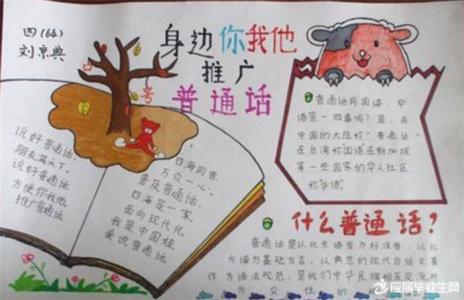 四(64)
刘京典
身边你我他
推广
普通话
号
说好普通话,
朋友满天下。
说好普通话
方便你我他
推广普通话
四海同音,
万众一心。
普及普通话,
四海是一家。
面向现代化,
我是中国娃,
爱说普通话
普通话同国语、华
语是一回事吗?是。在
中国的大陆称"普通话"
在台湾称国语在新加坡
等一些国家的华人社区
称华语。
什么普通话?
普通话是以北京语音为标准音,以北
方话为基础方言,以典范的现代白话文著
作为语法规范,是我们中华民族相互交流
方
应届毕业生网